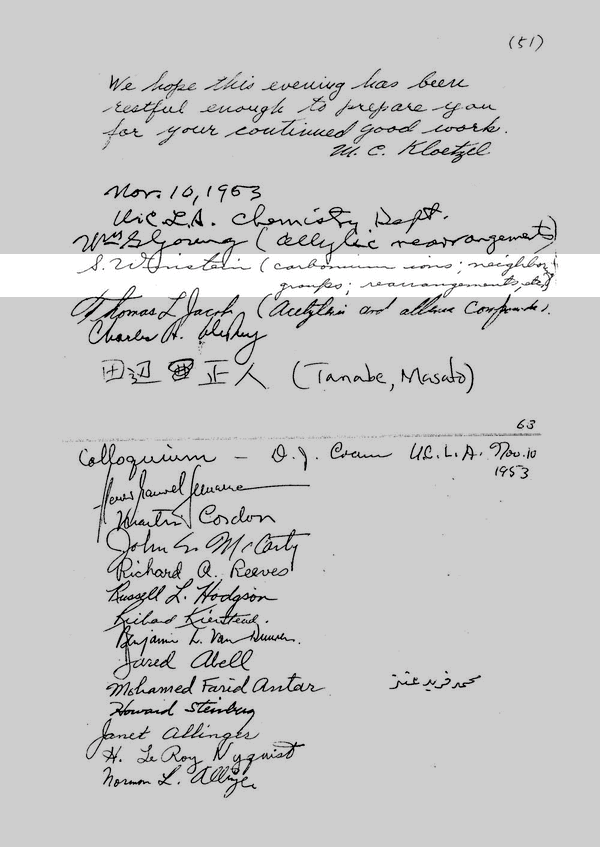 (51)
We hope this evening has been
restful enough to prepare you
for your continued good work.
M. C. Kloetzel
Nov. 10, 1953
U.C.L.A. Chemistry Dept.
Wm G Young (allylic rearrangements)
S. Winstein (carbonium ions; neighbor
groups; rearrangements, etc.)
Thomas L Jacobs (Acetylenic and allene Compounds).
Charles H.
田辺 正人 (Tanabe, Masato)
63
Colloquium — D. J. Cram U.C.L.A. Nov. 10
1953
Martin Cordon
John G McCarty
Richard A. Reeves
Russell L. Hodgson
Richard Kierstead.
Benjamin L. Van Duuren.
Jared Abell
Mohamed Farid Antar محمد فريد عنتر
Howard Steinberg
Janet Allinger
H. LeRoy Nyquist
Norman L. Allinger